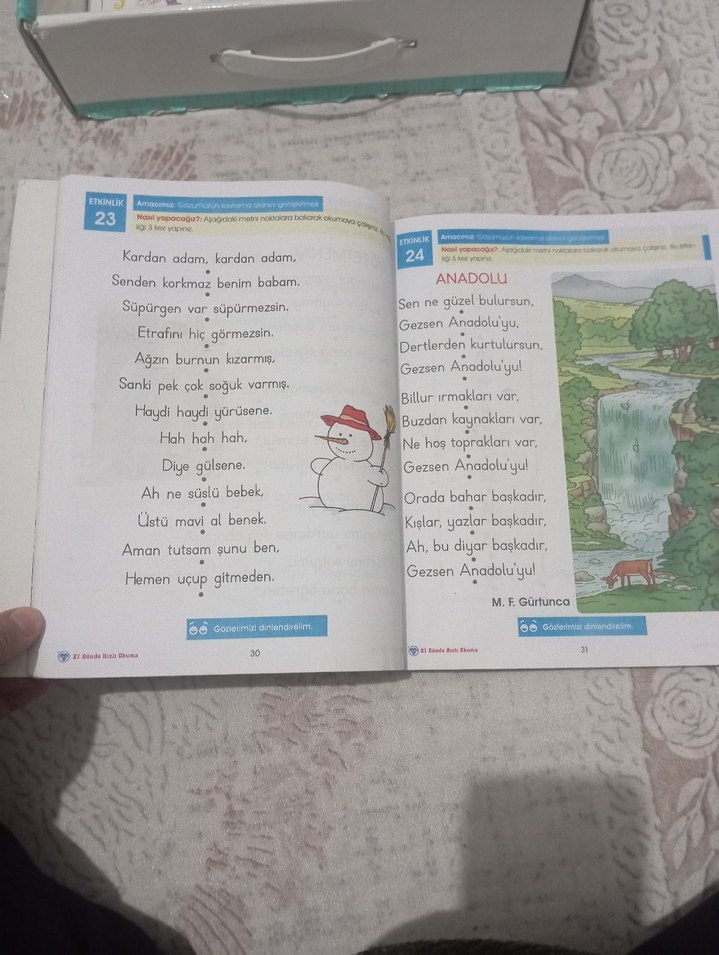 ETKİNLİK
23
Amacımız: Gözümüzün kavrama alanını genişletmek
Nasıl yapacağız?: Aşağıdaki metni noktalara bakarak okumaya çalışınız. Bu
liği 3 kez yapınız.
Kardan adam, kardan adam,
Senden korkmaz benim babam.
Süpürgen var süpürmezsin.
Etrafını hiç görmezsin.
Ağzın burnun kızarmış,
Sanki pek çok soğuk varmış.
Haydi haydi yürüsene.
Hah hah hah,
Diye gülsene.
Ah ne süslü bebek,
Üstü mavi al benek.
Aman tutsam şunu ben,
Hemen uçup gitmeden.
Gözlerimizi dinlendirelim.
21 Günde Hızlı Okuma
30
ETKİNLİK
24
Amacımız: Gözümüzün kavrama alanını genişletmek
Nasıl yapacağız?: Aşağıdaki metni noktalara bakarak okumaya çalışınız. Bu etkin-
liği 5 kez yapınız.
ANADOLU
Sen ne güzel bulursun,
Gezsen Anadolu'yu,
Dertlerden kurtulursun,
Gezsen Anadolu'yu!
Billur ırmakları var,
Buzdan kaynakları var,
Ne hoş toprakları var,
Gezsen Anadolu'yu!
Orada bahar başkadır,
Kışlar, yazlar başkadır,
Ah, bu diyar başkadır,
Gezsen Anadolu'yu!
M. F. Gürtunca
Gözlerimizi dinlendirelim.
21 Günde Hızlı Okuma
31